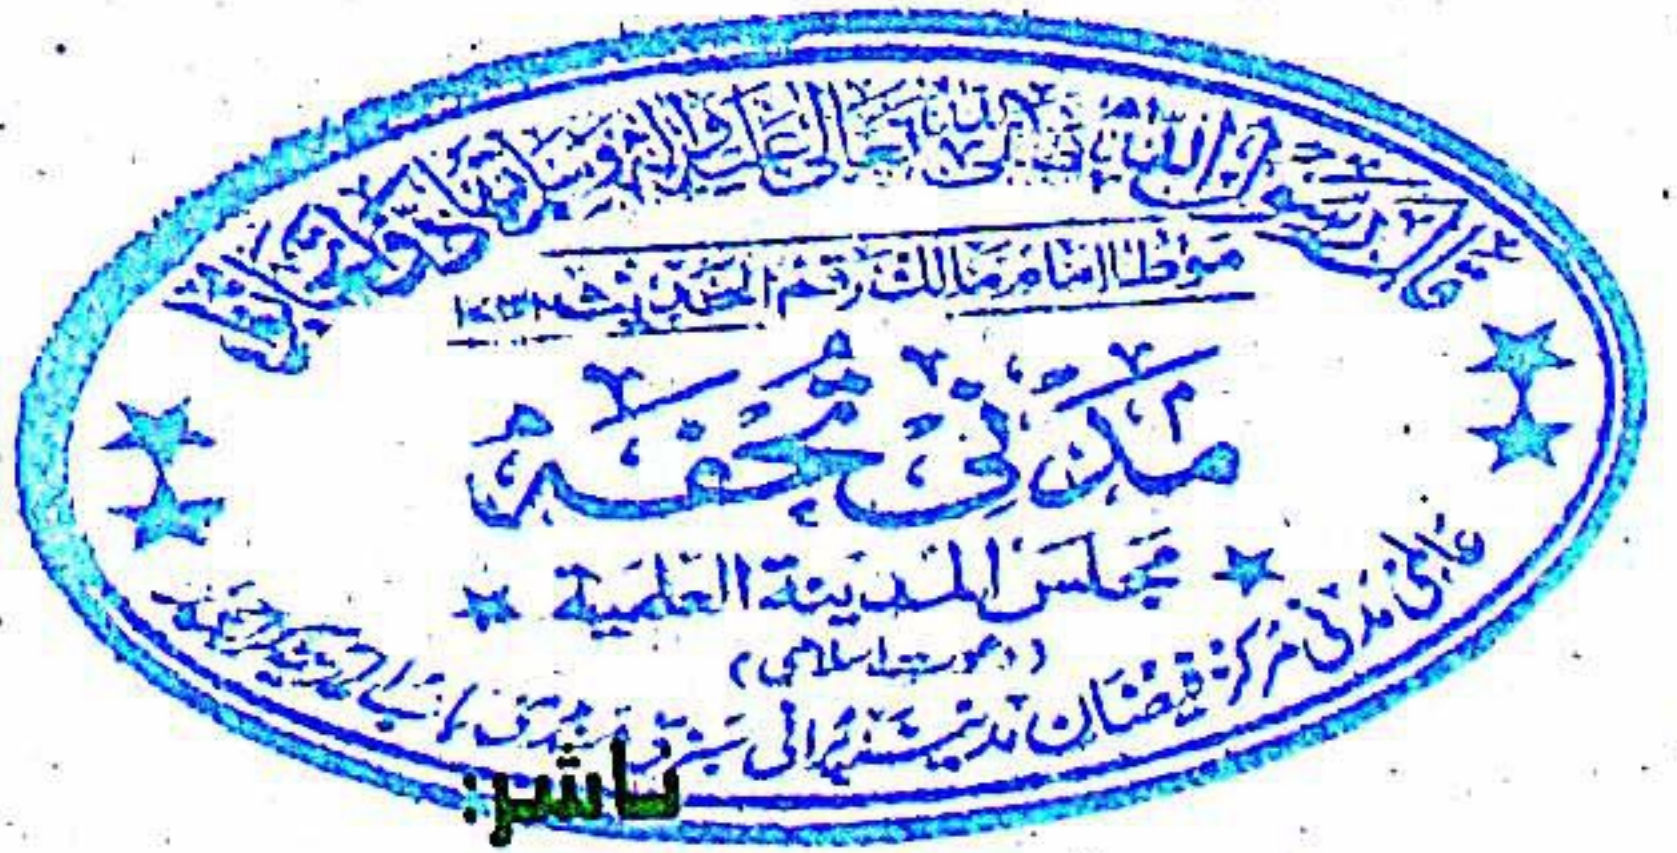 قال رسول الله صلی الله تعالی علیہ والہ وسلم تهادوا تحابوا
موطا امام مالک رقم الحدیث ۱۷۳۱
مَدَنی تُحفہ
مجلس المدینۃ العلمیۃ
(دعوت اسلامی)
عالمی مدنی مرکز فیضان مدینہ پرانی سبزی منڈی باب المدینہ کراچی
ناشر: